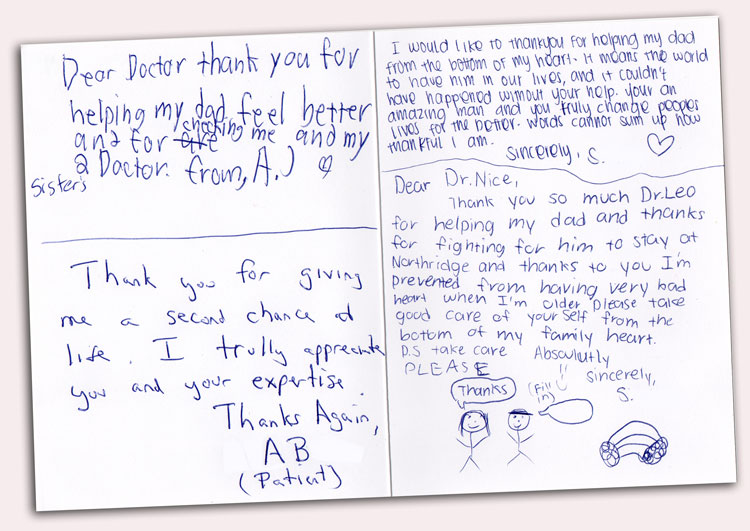 Dear Doctor thank you for
helping my dad feel better
and for checking me and my
Sisters
a Doctor. from, A.J
Thank you for giving
me a second chance at
life. I trully appreciate
you and your expertise.
Thanks Again,
AB
(Patient)
I would like to thankyou for helping my dad
from the bottom of my heart. It means the world
to have him in our lives, and it couldn't
have happened without your help. your an
amazing man and you truly change peoples
lives for the better. Words cannot sum up how
thankful I am.
Sincerely, S.
Dear Dr.Nice,
Thank you so much Dr.Leo
for helping my dad and thanks
for fighting for him to stay at
Northridge and thanks to you I'm
prevented from having very bad
heart when I'm older please take
good care of your self from the
bottom of my family heart.
P.S take care Absoulutly
PLEASE
Sincerely,
S.
Thanks
(Fill in)